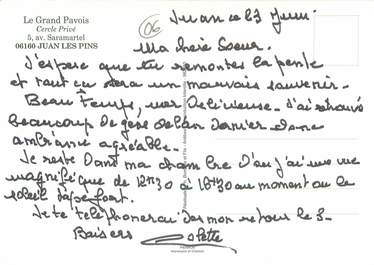 Le Grand Pavois
Cercle Privé
5, av. Saramartel
06160 JUAN LES PINS
06
Juan ce 23 Juin
Ma chère Soeur.
J'espère que tu remontes la pente
et tout ça sera un mauvais souvenir.
Beau Temps, mer Délicieuse. J'ai retrouvé
beaucoup de gens de l'an dernier donc
ambiance agréable.
Je reste dans ma chambre d'où j'ai une vue
magnifique de 12H30 à 16H30 au moment où le
soleil tape fort.
Je te téléphonerai dès mon retour le 3-
Baisers Colette